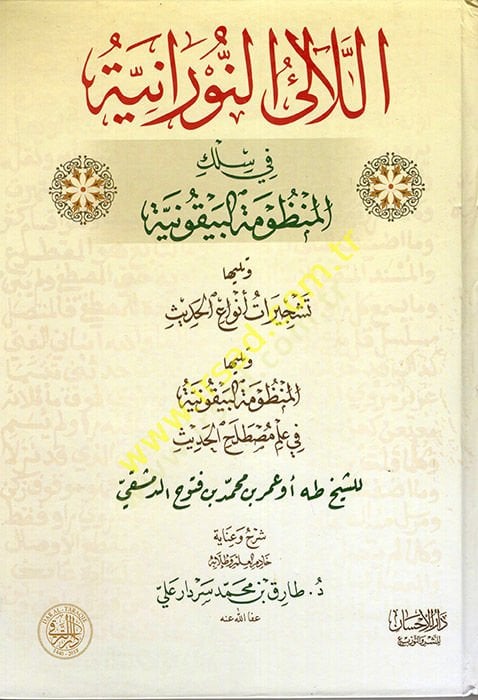 اللَّآلِئُ النُّورَانِيَّةُ
فِي سِلْكِ
المَنْظُومَةِ البَيْقُونِيَّةِ
وَيَلِيهَا
تَشْجِيرَاتُ أَنْوَاعِ الحَدِيثِ
وَيَلِيهَا
المَنْظُومَةُ البَيْقُونِيَّةُ
فِي عِلْمِ مُصْطَلَحِ الحَدِيثِ
للشيخ طه أو عمر بن محمد بن فتوح الدمشقيّ
شرح وعناية
خادم العلم وطلابه
د. طارق بن محمد سردار علي
عفا الله عنه
دار الإحسان
للنشر والتوزيع
DAR AL-TARAZIE
www.irsad.com.tr